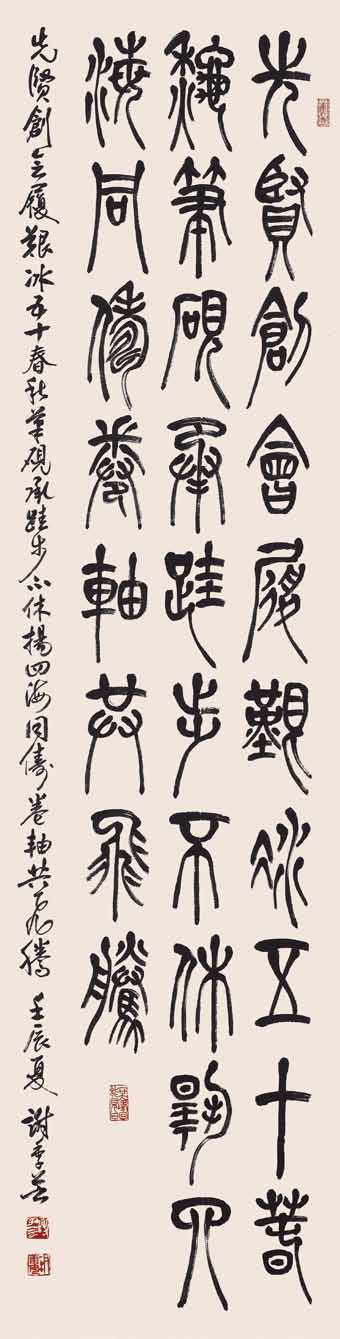 先賢創會履艱冰五十春
秋筆硯承跬步不休揚四
海同儔卷軸共飛騰
先賢創会履艱冰五十春秋筆硯承跬步不休揚四海同儔卷軸共飛騰 壬辰夏 謝季芸